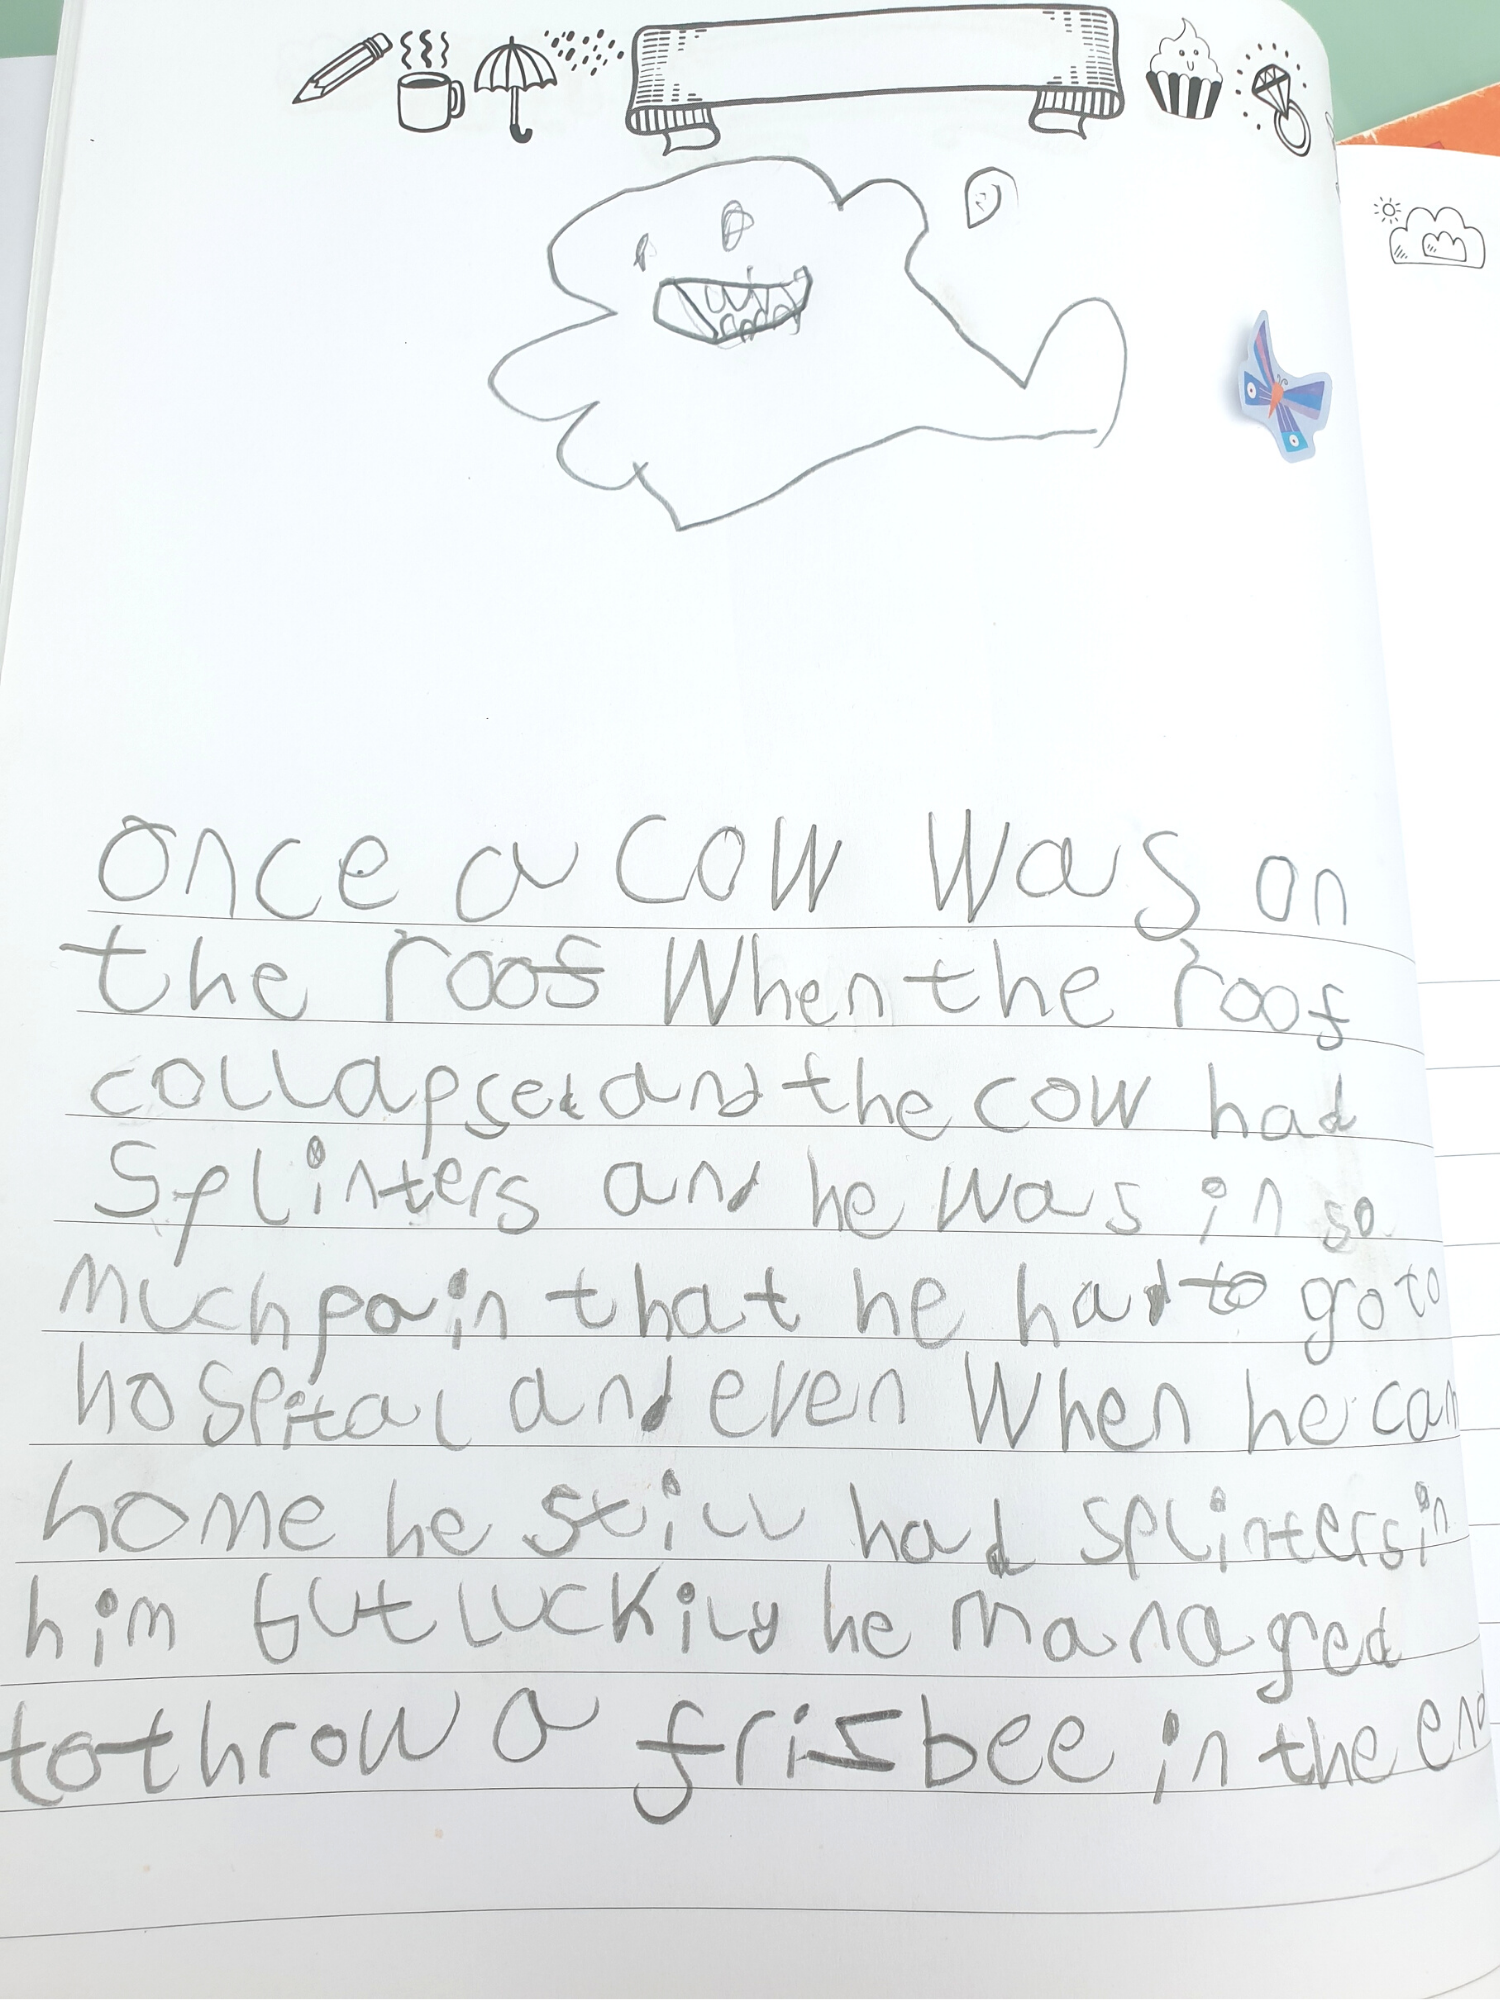 once a cow was on
the roof when the roof
collapsed and the cow had
splinters and he was in so
much pain that he had to go to
hospital and even when he cam
home he still had splinters in
him but luckily he managed
to throw a frisbee in the end